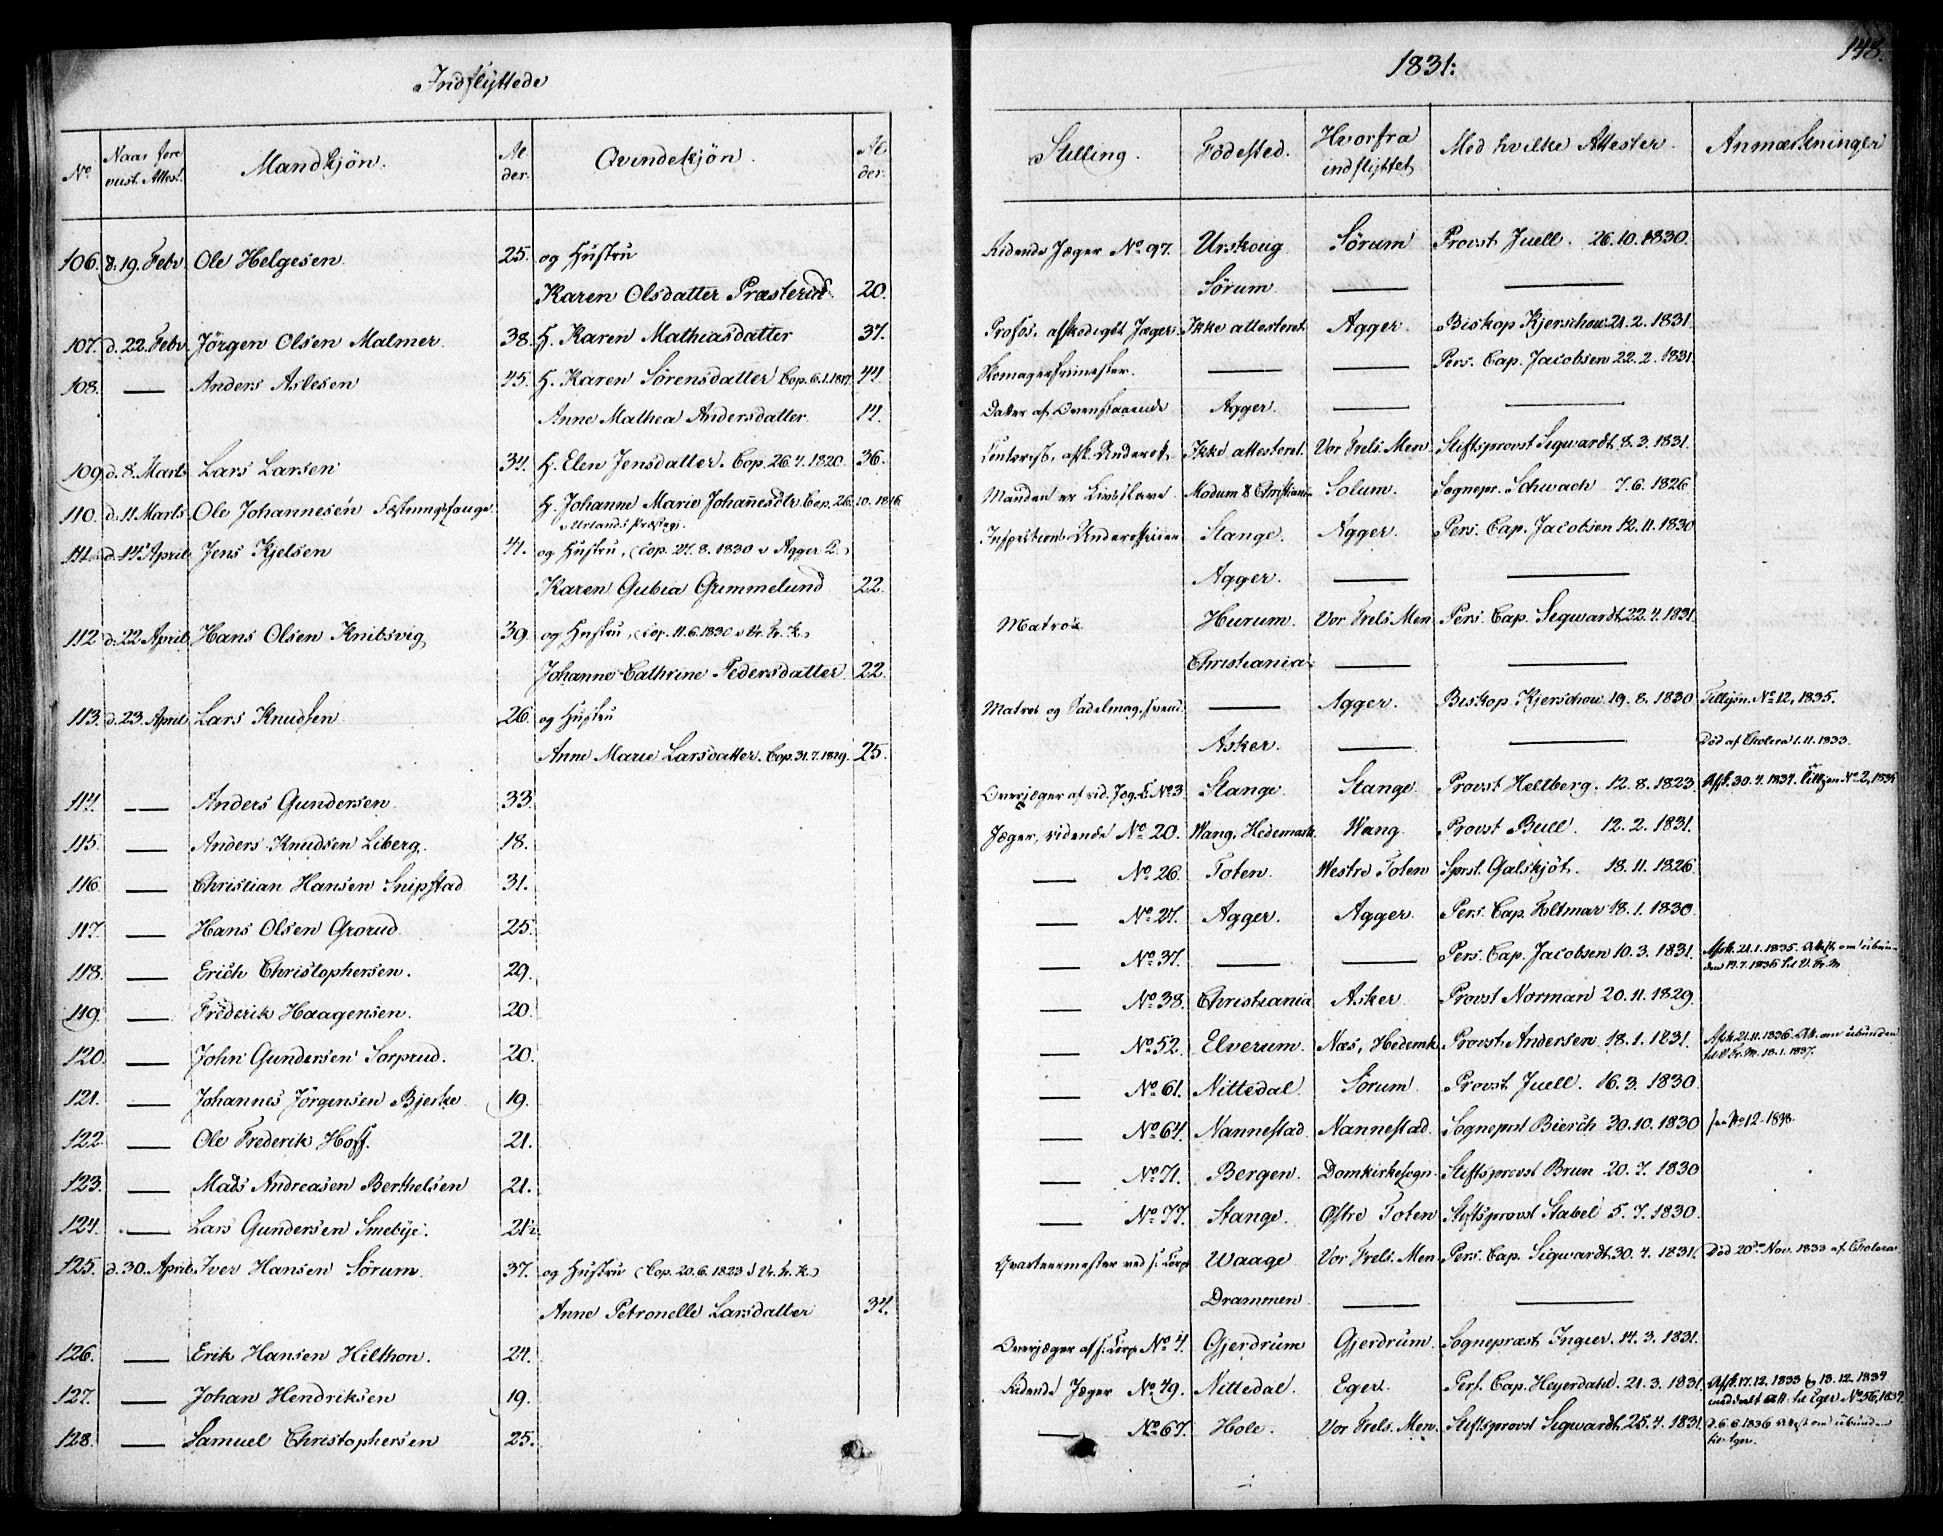 Indflyttede
1831.
148.
No | Naar fore vist Attest. | Mandkjön. | Al der. | Qvindekjön. | Al der. | Stilling. | Födested. | Hvorfra indflyttet | Med hvilke Attester. | Anmærkninger
106. d. 19. Febr. Ole Helgesen 25. og Hustru | Ridende Jæger No 97. Urskoug Sörum Provst Juell. 26.10.1830.
Karen Olsdatter Præsterud 20. | Sörum — —
107. d. 22. Febr. Jörgen Olsen Malmer 38. H. Karen Mathiasdatter 37. | Profos, afskediget Jæger. Ikke attesteret Agger. Biskop Kjerschow 21.2.1831.
108. — Anders Aslesen 45. H. Karen Sörensdatter Cop. 6.1.1817. 44. | Skomagersvend — — Pers. Cap. Jacobsen 22.2.1831
Anne Mathea Andersdatter 14. | Datter af Ovenstaaende Agger. — —
109. d. 8. Marts Lars Larsen 34. H. Elen Jensdatter. Cop. 26.4.1820. 36. | afsk. Underof. Ikke attesteret. Vor Frels. Men. Stiftsprovst Sigwardt. 8.3.1831.
110. d. 11 Marts Ole Johannesen Fæstningsfange H. Johanne Marie Johanesdtr Cop. 26.10.1816 | Manden er Livsslave Modum & Christiania Solum. Sognepr. Schwach 7.6.1826
111. d. 14. April Jens Kjelsen 41. og Hustru, (Cop. 27.8.1830 i Agger K.) | Inspections-Underofficier Stange. Agger. Pers. Cap. Jacobsen 12.11.1830
Karen Gubia Grimmelund 22. | Agger. — —
112. d. 22. April Hans Olsen Knibsvig 39. og Hustru, (Cop. 11.6.1830 i Vr. Fr. K.) | Matros Hurum. Vor Frels. Men Pers. Cap. Sigwardt 22.4.1831.
Johanne Cathrine Pedersdatter 22. | Christiania. — —
113. d. 23. April Lars Knudsen 26. og Hustru | Matros og Sadelmag. svend. — Agger. Biskop Kjerschow 19.8.1830 Tillysn. No 12, 1835.
Anne Marie Larsdatter. Cop. 31.7.1829. 25. | Asker. — — Död af Cholera 1.11.1833.
114. — Anders Gundersen 33. | Overjæger af rid. Jæg. C. No 3. Stange. Stange Provst Heltberg. 12.8.1823. Afsk. 30.4.1834. Tillysn No 2, 1835
115. — Anders Knudsen Liberg. 18. | Jæger, ridende No 20. Wang, Hedemark. Wang. Provst Bull. 12.2.1831.
116 — Christian Hansen Snipstad 31. | — No 26. Toten. Westre Toten Sprst. Galskjöt. 18.11.1826.
117. — Hans Olsen Grorud 25. | — No 27. Agger. Agger. Pers. Cap. Foltmar 18.1.1830.
118. — Erich Christophersen. 29. | — No 37. — — Pers. Cap. Jacobsen 10.3.1831. Afsk. 21.1.1835. Attest om ubunden 19.7.1836 til V. Fr. M
119. — Fröderik Haagensen. 20. | — No 38. Christiania Asker. Provst Norman 20.11.1829.
120. — John Gundersen Sorprud. 20. | — No 52. Elverum. Næs, Hedemk. Provst Andersen 18.1.1831. Afsk. 21.11.1836. Att. om ubunden til V. Fr. M. 18.1.1837.
121. — Johannes Jörgensen Bjerke 19. | — No 61. Nittedal Sörum. Provst Juell. 16.3.1830.
122. — Ole Frederik Hoff. 21. | — No 64. Nannestad Nannestad. Sogneprst Bierch 30.10.1830 No 12 1838.
123. — Mads Andreasen Berthelsen 21. | — No 71. Bergen. Domkirkesogn. Stiftsprovst Brun 20.7.1830
124. — Lars Gundersen Smebye. 21½ | — No 77. Stange. Østre Toten Stiftsprovst Stabel 5.7.1830.
125. d. 30. April. Iver Hansen Sörum. 37. og Hustru (Cop. 20.6.1823 i Vr. Fr. K.) | Qvarteermester ved s. Corps Waage Vor Frels. Men. Pers. Cap. Sigwardt 30.4.1831. Död 20de Nov. 1833 af Cholera
Anne Petronelle Larsdatter 34. | Drammen — —
126. — Erik Hansen Hilthon. 24. | Overjæger af s. Corps No 4. Gjerdrum Gjerdrum. Sognepræst Ingier. 14.3.1831.
127. — Johan Hendriksen 19. | Ridende Jæger No 49. Nittedal. Eger. Pers. Cap. Heyerdahl. 21.3.1831. Afsk. 17.12.1833 13.12.1834 meddeelt Att. til Eger No 56, 1834.
128. — Samuel Christophersen 25. | — No 67. Hole. Vor Frels. Men. Stiftsprovst Sigwardt. 25.4.1831. d. 6.6.1836 Attest om ubunden til Eger.